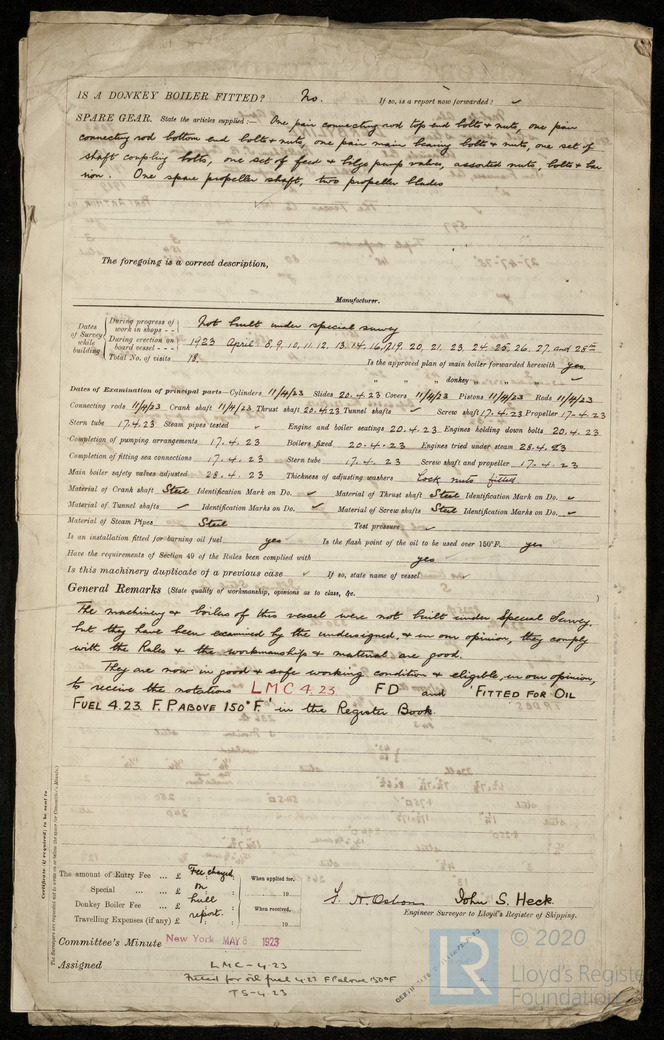 IS A DONKEY BOILER FITTED? No. If so, is a report now forwarded? ✓
SPARE GEAR. State the articles supplied:— One pair connecting rod top end bolts & nuts, one pair
connecting rod bottom end bolts & nuts, one pair main bearing bolts & nuts, one set of
shaft coupling bolts, one set of feed & bilge pump valves, assorted nuts, bolts & bar
iron. One spare propeller shaft, two propeller blades
The foregoing is a correct description,
Manufacturer.
Dates of Survey while building
During progress of work in shops - - Not built under special survey
During erection on board vessel - - - 1923 April 8, 9, 10, 11, 12, 13, 14, 16, 17, 19, 20, 21, 23, 24, 25, 26, 27, and 28th
Total No. of visits 18. Is the approved plan of main boiler forwarded herewith yes
" " " donkey " " " ✓
Dates of Examination of principal parts—Cylinders 11/4/23 Slides 20.4.23 Covers 11/4/23 Pistons 11/4/23 Rods 11/4/23
Connecting rods 11/4/23 Crank shaft 11/4/23 Thrust shaft 20.4.23 Tunnel shafts ✓ Screw shaft 17.4.23 Propeller 17.4.23
Stern tube 17.4.23 Steam pipes tested ✓ Engine and boiler seatings 20.4.23 Engines holding down bolts 20.4.23
Completion of pumping arrangements 17.4.23 Boilers fixed 20.4.23 Engines tried under steam 28.4.23
Completion of fitting sea connections 17.4.23 Stern tube 17.4.23 Screw shaft and propeller 17.4.23
Main boiler safety valves adjusted 28.4.23 Thickness of adjusting washers Lock nuts fitted
Material of Crank shaft Steel Identification Mark on Do. ✓ Material of Thrust shaft Steel Identification Mark on Do. ✓
Material of Tunnel shafts ✓ Identification Marks on Do. ✓ Material of Screw shafts Steel Identification Marks on Do. ✓
Material of Steam Pipes Steel Test pressure ✓
Is an installation fitted for burning oil fuel yes Is the flash point of the oil to be used over 150°F. yes
Have the requirements of Section 49 of the Rules been complied with yes
Is this machinery duplicate of a previous case ✓ If so, state name of vessel ✓
General Remarks (State quality of workmanship, opinions as to class, &c.)
The machinery & boilers of this vessel were not built under Special Survey,
but they have been examined by the undersigned & in our opinion, they comply
with the Rules & the workmanship & material are good.
They are now in good & safe working condition & eligible, in our opinion,
to receive the notations LMC 4.23 FD and 'FITTED FOR OIL
FUEL 4.23 F.P. ABOVE 150°F.' in the Register Book.
Certificate (if required) to be sent to
The Surveyors are requested not to write on or below the space for Committee's Minute.
The amount of Entry Fee ... £ Fee charged When applied for,
Special ... ... £ on 19
Donkey Boiler Fee ... £ hull When received,
Travelling Expenses (if any) £ report. 19
John S. Heck
Engineer Surveyor to Lloyd's Register of Shipping.
Committee's Minute New York MAY 8 1923
Assigned LMC-4.23
Fitted for oil fuel 4.23 F.P. above 150°F
TS-4.23
LR
© 2020
Lloyd's Register
Foundation